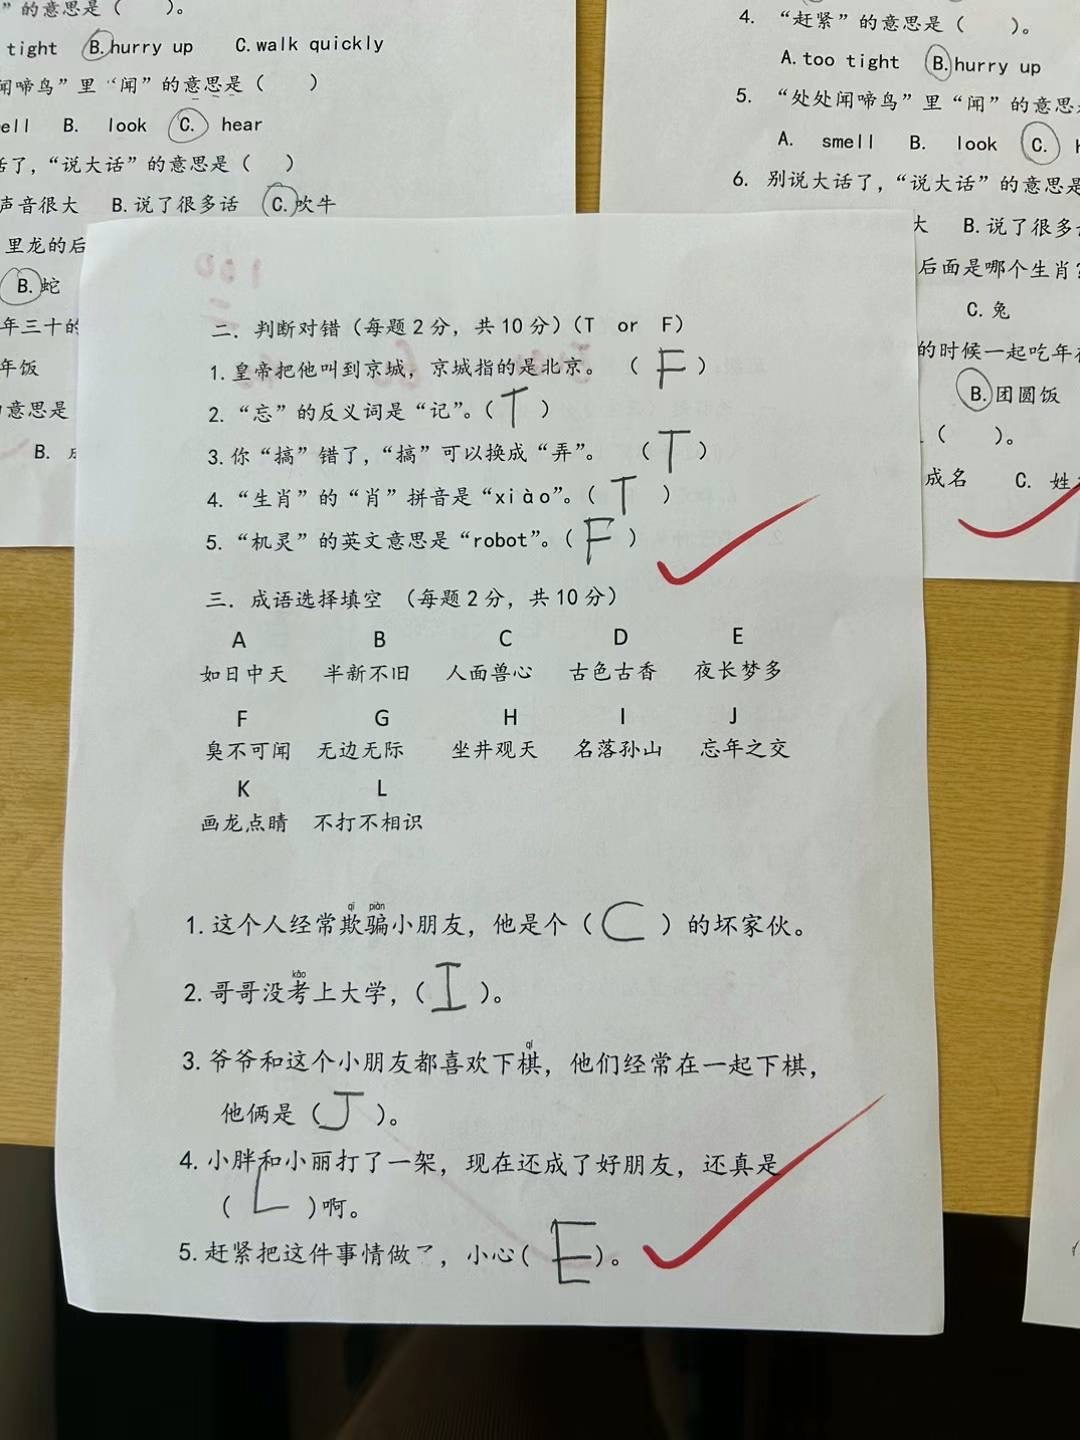 ”的意思是（　　）。
tight B.hurry up C.walk quickly
闻啼鸟”里“闻”的意思是（　　）
ell B. look C. hear
话了，“说大话”的意思是（　　）
声音很大 B.说了很多话 C.吹牛
里龙的后
B.蛇
年三十的
年饭
意思是
B.
4. “赶紧”的意思是（　　）。
A.too tight B.hurry up
5. “处处闻啼鸟”里“闻”的意思
A. smell B. look C.
6. 别说大话了，“说大话”的意思是
大 B.说了很多
后面是哪个生肖？
C.兔
的时候一起吃年
B.团圆饭
（　　）。
成名 C. 姓
100
二. 判断对错（每题2分，共10分）（T or F）
1.皇帝把他叫到京城，京城指的是北京。（ F ）
2.“忘”的反义词是“记”。（ T ）
3.你“搞”错了，“搞”可以换成“弄”。（ T ）
4.“生肖”的“肖”拼音是“xiào”。（ T ）
5.“机灵”的英文意思是“robot”。（ F ）
三. 成语选择填空 （每题2分，共10分）
A B C D E
如日中天 半新不旧 人面兽心 古色古香 夜长梦多
F G H I J
臭不可闻 无边无际 坐井观天 名落孙山 忘年之交
K L
画龙点睛 不打不相识
qī piàn
1.这个人经常欺骗小朋友，他是个（ C ）的坏家伙。
kǎo
2.哥哥没考上大学，（ I ）。
qí
3.爷爷和这个小朋友都喜欢下棋，他们经常在一起下棋，
他俩是（ J ）。
4.小胖和小丽打了一架，现在还成了好朋友，还真是
（ L ）啊。
5.赶紧把这件事情做了，小心（ E ）。